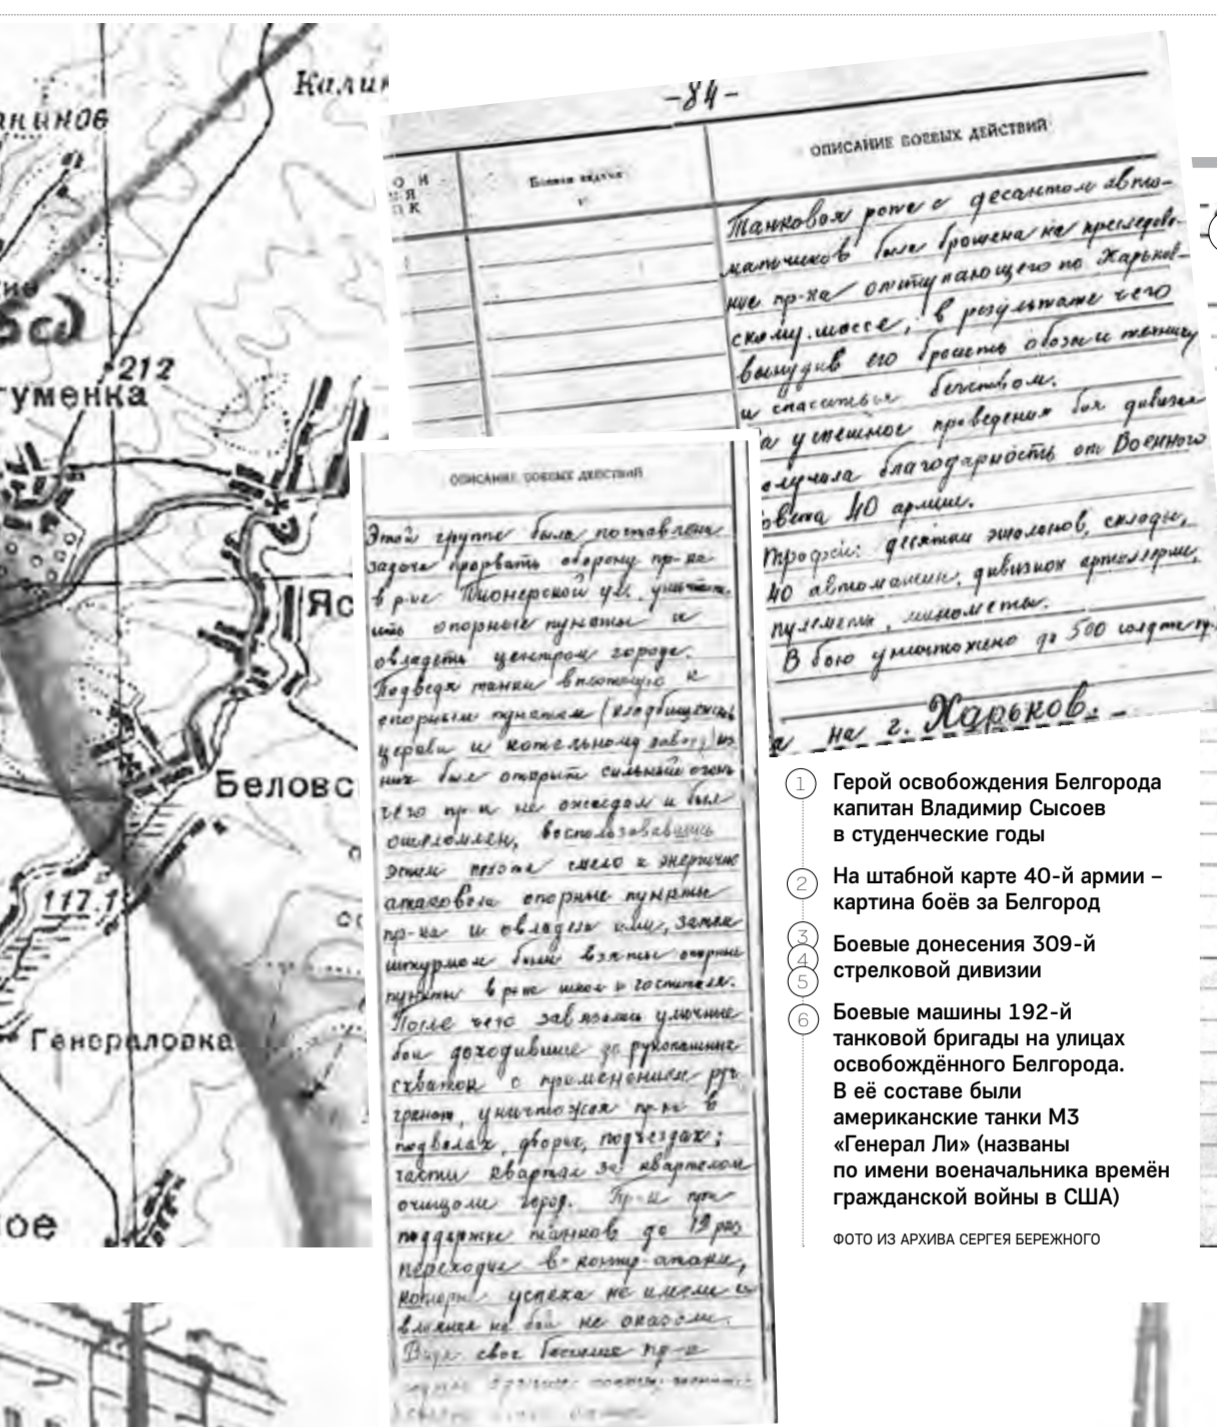 Калин
нino
212
уменка
Яс
Беловс
117.1
Генераловка
ое
-84-
Боевая задача
ОПИСАНИЕ БОЕВЫХ ДЕЙСТВИЙ
Танковая рота с десантом авто-
матчиков была брошена на преследова-
ние пр-ка отступающего по Харьков-
скому шоссе, в результате чего
вынудив его бросить обозы и технику
и спасаться бегством.
за успешное проведения боя дивизия
олучила благодарность от Военного
овета 40 армии.
Трофеи: десятки эшелонов, склады,
40 автомашин, дивизион артиллерии,
пулеметы, минометы.
В бою уничтожено до 500 солдат
на г. Харьков.
ОПИСАНИЕ БОЕВЫХ ДЕЙСТВИЙ
Этой группе была поставлена
задача прорвать оборону пр-ка
в р-не Пионерской ул., уничтож-
ить опорные пункты и
овладеть центром города.
Подведя танки вплотную к
опорным пунктам (кладбищенск.
церкви и котельному заводу) из
них был открыт сильный огонь
чего пр-к не ожидал и был
ошеломлен, воспользовавшись
этим пехота смело и энергично
атаковала опорные пункты
пр-ка и овладела ими, затем
штурмом были взяты опорные
пункты в р-не школ и госпиталя.
После чего завязались уличные
бои доходившие до рукопашных
схваток с применением руч.
гранат, уничтожая пр-ка в
подвалах, дворах, подъездах;
части квартал за кварталом
очищали город. Пр-к при
поддержке танков до 12 раз
переходил в контр-атаки,
которые успеха не имели и
влияния на бой не оказали.
Видя свое бессилие пр-к
1 Герой освобождения Белгорода
капитан Владимир Сысоев
в студенческие годы
2 На штабной карте 40-й армии –
картина боёв за Белгород
3 4 5 Боевые донесения 309-й
стрелковой дивизии
6 Боевые машины 192-й
танковой бригады на улицах
освобождённого Белгорода.
В её составе были
американские танки М3
«Генерал Ли» (названы
по имени военачальника времён
гражданской войны в США)
ФОТО ИЗ АРХИВА СЕРГЕЯ БЕРЕЖНОГО